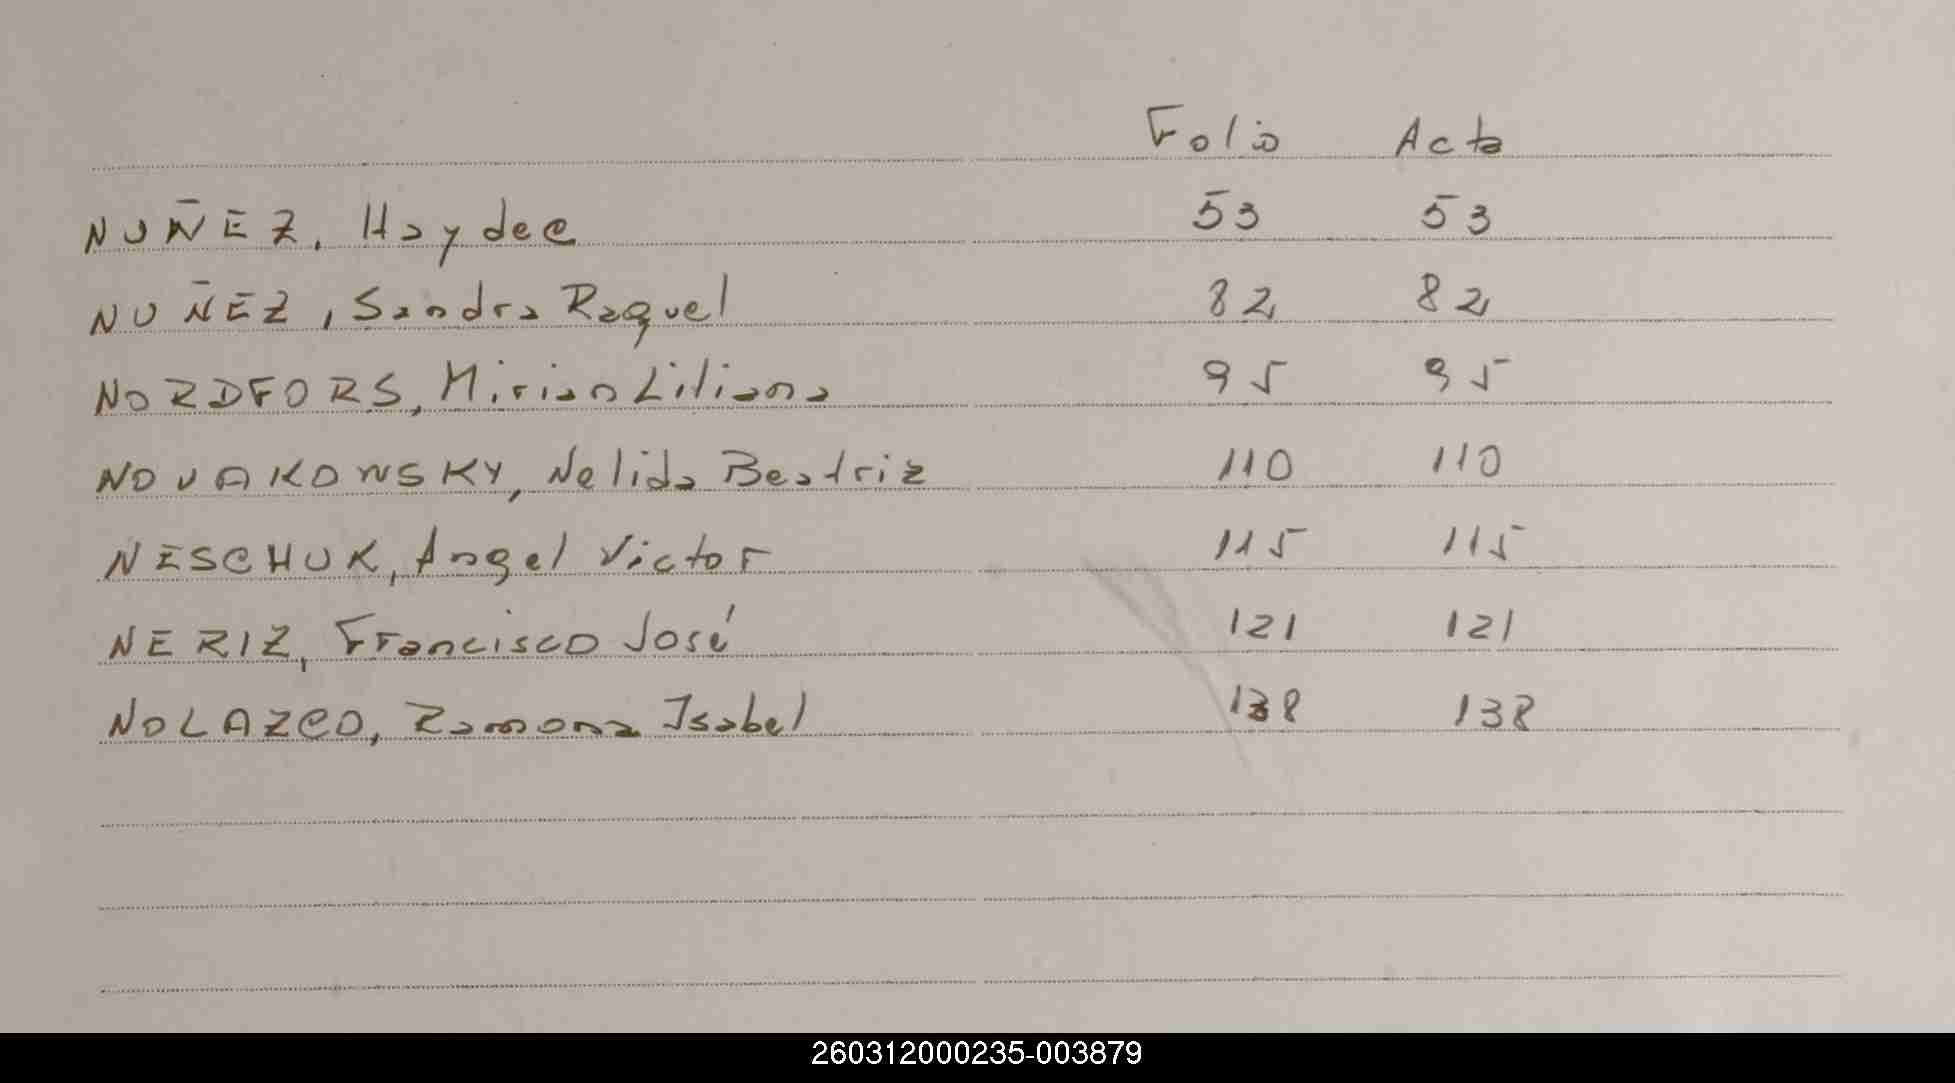 Folio Acta
NUÑEZ, Haydee 53 53
NUÑEZ, Sandra Raquel 82 82
NORDFORS, Mirian Liliana 95 95
NOVAKOWSKY, Nelida Beatriz 110 110
NESCHUK, Angel Victor 115 115
NERIZ, Francisco José 121 121
NOLAZCO, Ramona Isabel 138 138
260312000235-003879